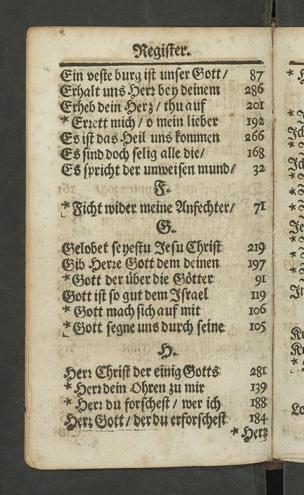 Register.
Ein veste burg ist unser Gott/ 87
Erhalt uns Herr bey deinem 286
Erheb dein Herz/ thu auf 201
* Errett mich/ o mein lieber 192
Es ist das Heil uns kommen 266
Es sind doch selig alle die/ 168
Es spricht der unweisen mund/ 32
F.
* Ficht wider meine Anfechter/ 71
G.
Gelobet seyestu Jesu Christ 219
Gib Herre Gott dem deinen 197
* Gott der über die Götter 91
Gott ist so gut dem Israel 119
* Gott mach sich auf mit 106
* Gott segne uns durch seine 105
H.
Herr Christ der einig Gotts 281
* Herr dein Ohren zu mir 139
* Herr du forschest/ wer ich 188
Herr Gott/ der du erforschest 184
* Herr